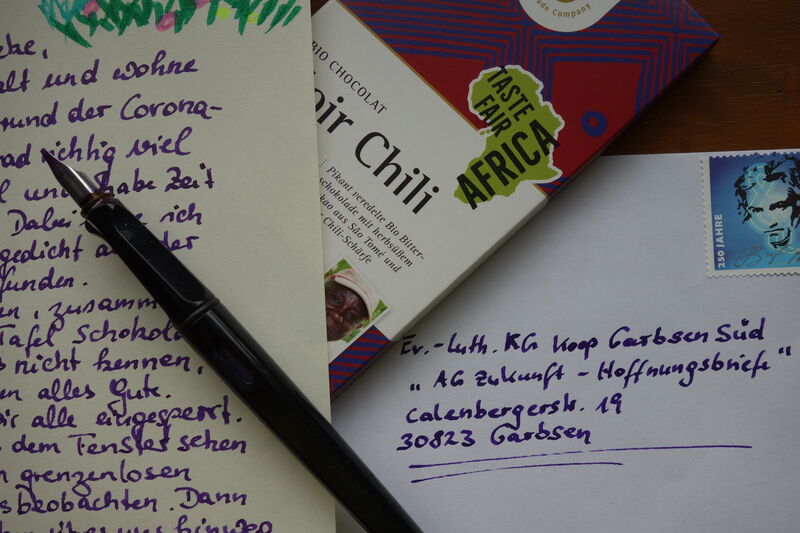 eke,
alt und wohne
rund der Corona-
rad richtig viel
l und habe Zeit
Dabei ich
gedicht aus der
funden.
en, zusamm
Tafel Schokola
s nicht kennen,
en alles Gute.
wir alle eingesperrt.
dem Fenster sehen
n grenzenlosen
s beobachten. Dann
über uns hinweg
ade Company
BIO CHOCOLAT
oir Chili
Pikant veredelte Bio Bitter-
schokolade mit herbsüßem
kao aus São Tomé und
Chili-Schärfe
TASTE
FAIR
AFRICA
250 JAHRE
Ev.-Luth. KG Koop Garbsen Süd
„AG Zukunft - Hoffnungsbriefe"
Calenbergerstr. 19
30823 Garbsen